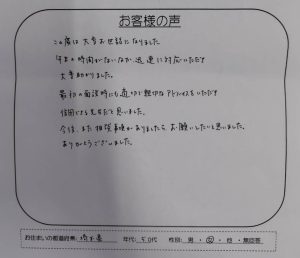 お客様の声
この度は大変お世話になりました。
年末の時間がないなか、迅速に対応いただき
大変助かりました。
最初の面談時にも適切で親切なアドバイスをいただき
信頼できる先生だと思いました。
今後、また相談事項がありましたら、お願いしたいと思いました。
ありがとうございました。
お住まいの都道府県: 埼玉県 年代: 50代 性別: 男・女・他・無回答